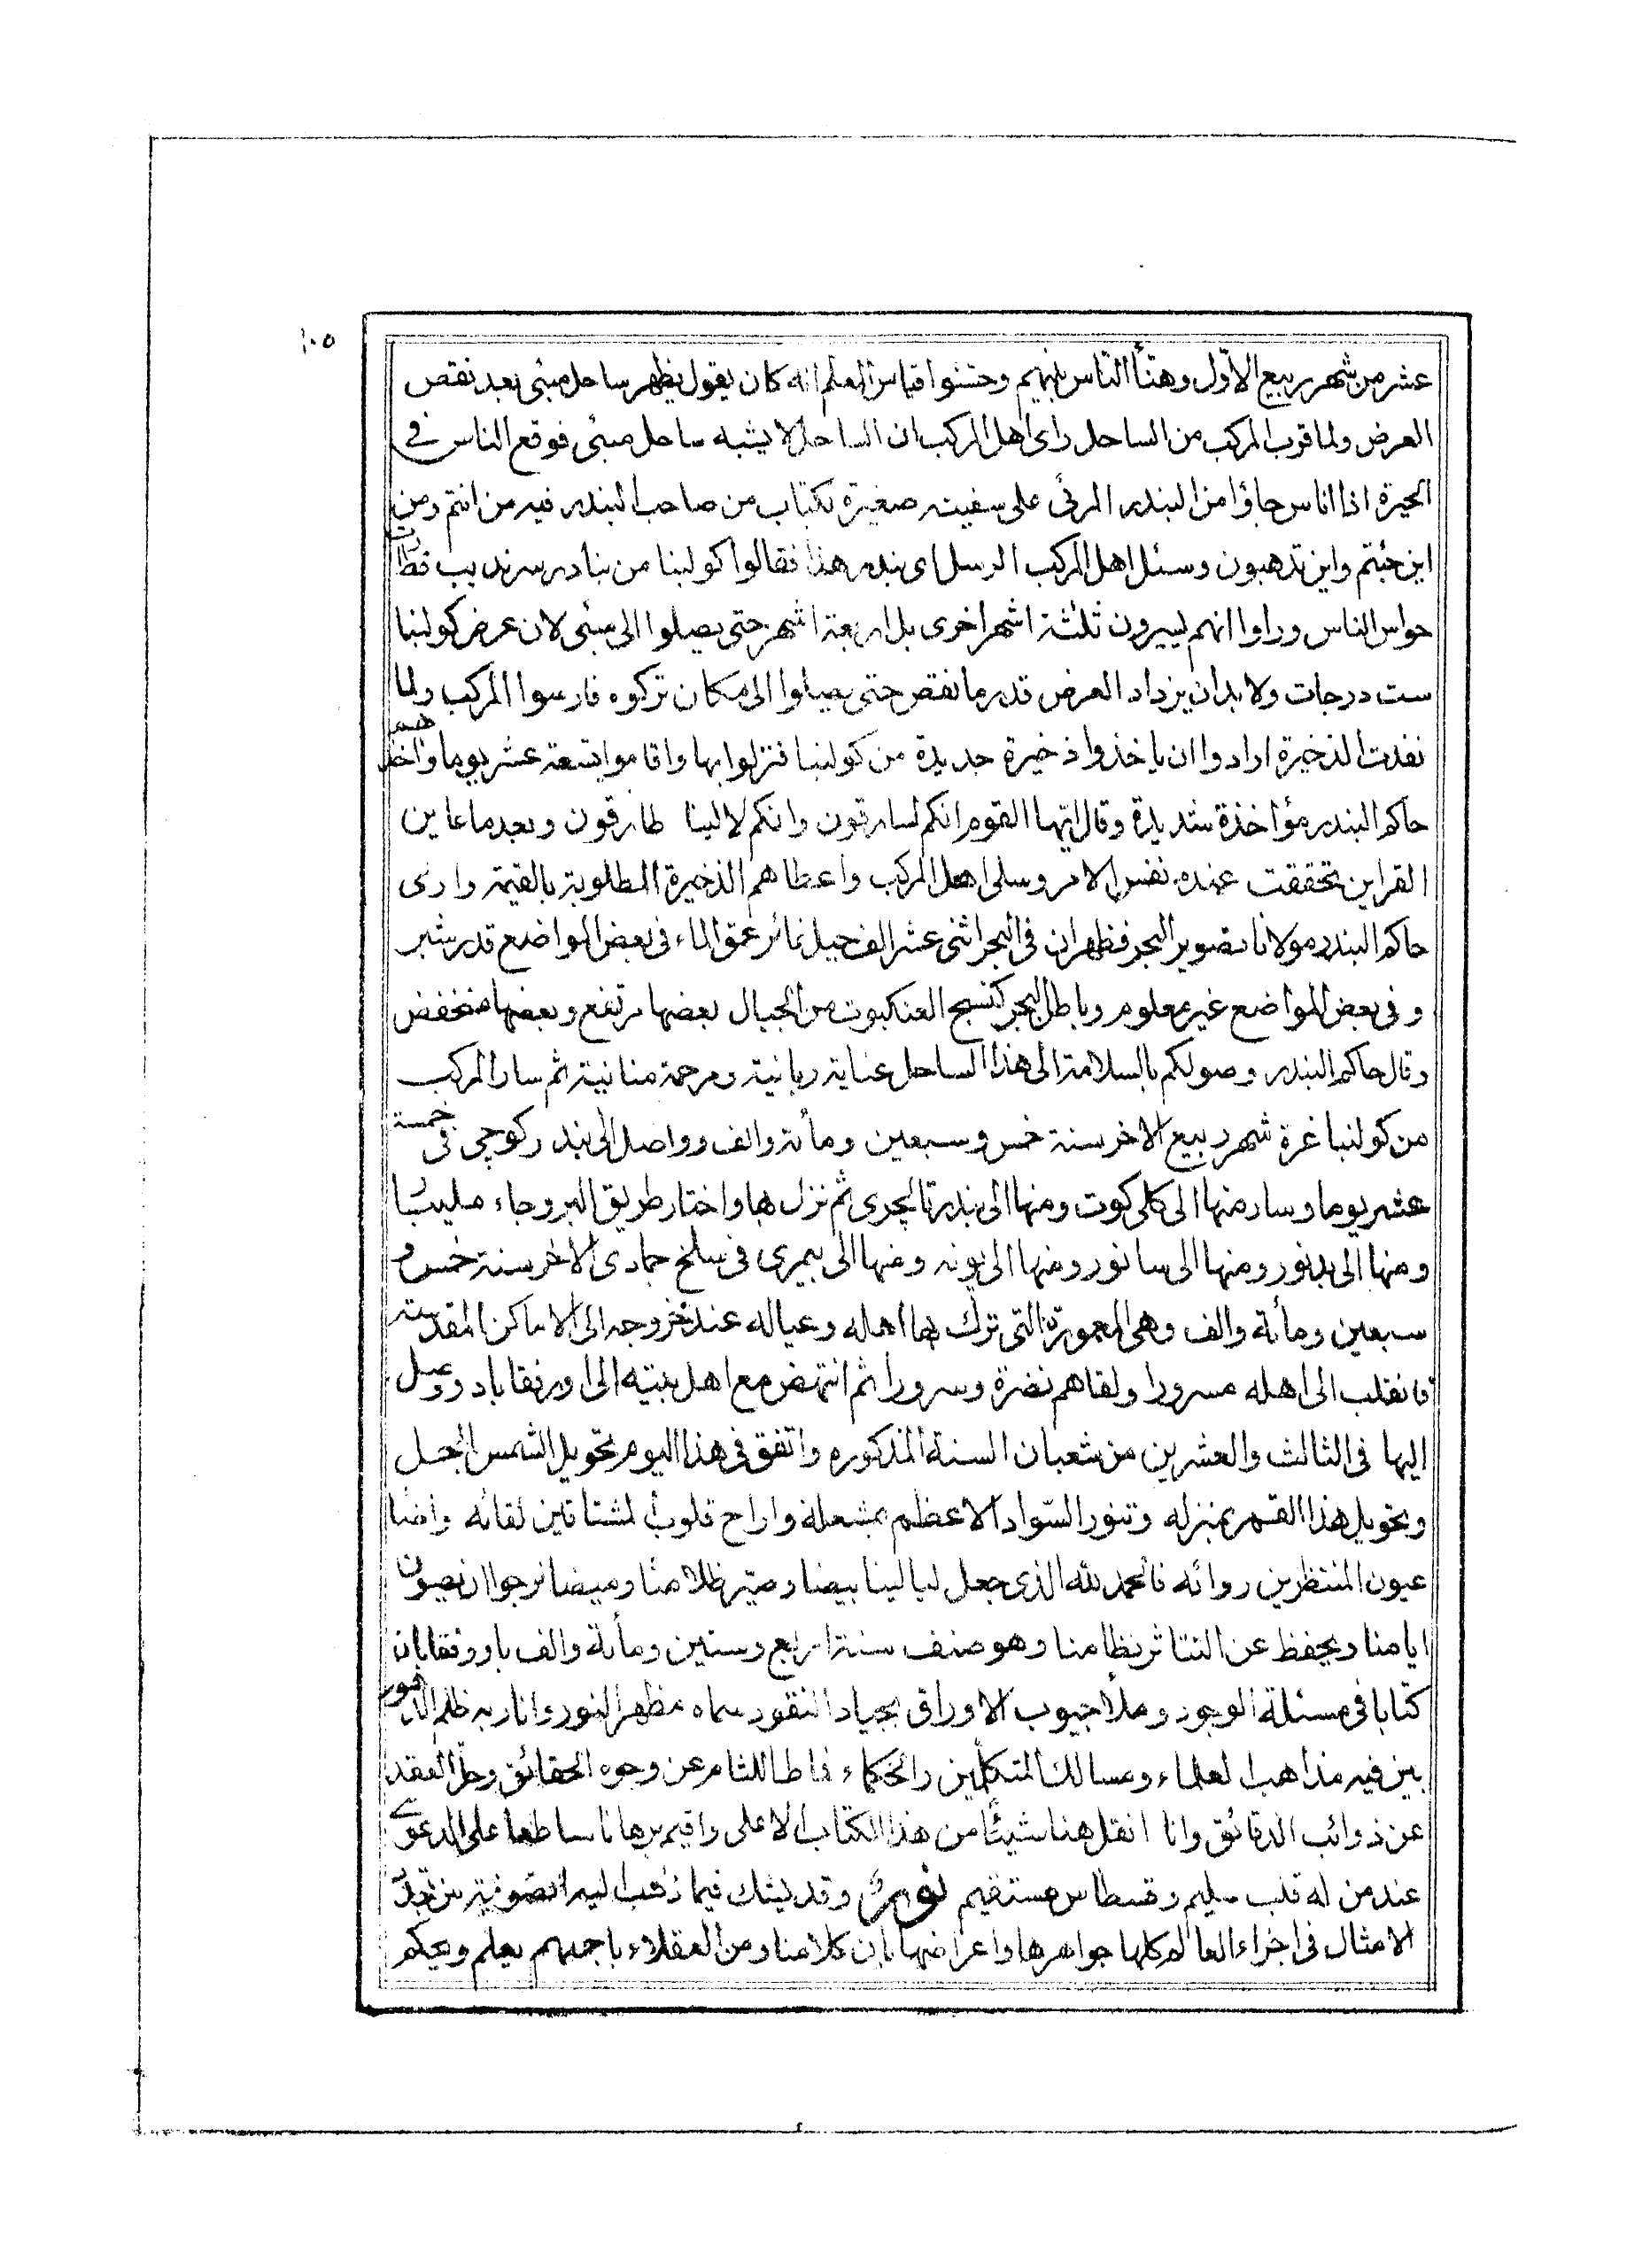 ١٠٥
عشر من شهر ربيع الاوّل وهنأ النّاس بينهم وحسّنوا قياس المعلم انه كان يقول يظهر ساحل منبئى بعد نقص
العرض ولما قرب المركب من الساحل راى اهل المركب ان الساحل لا يشبه ساحل منبئى فوقع الناس فى
الحيرة اذا اناس جاؤا من البندر المرئى على سفينة صغيرة بكتاب من صاحب البندر فيه من انتم ومن
اين جئتم واين تذهبون وسئل اهل المركب الرسل اى بندر هذا فقالوا كولنبا من بنادر سرنديب فطارت
حواس الناس وراوا انهم يسيرون ثلثة اشهر اخرى بل اربعة اشهر حتى يصلوا الى منبئى لان عرض كولنبا
ست درجات ولا بد ان يزداد العرض قدر ما نقص حتى يصلوا الى مكان تركوه فارسوا المركب ولما
نفدت الذخيرة ارادوا ان ياخذوا ذخيرة جديدة من كولنبا فنزلوا بها واقاموا تسعة عشر يوما واخذهم
حاكم البندر مؤاخذة شديدة وقال ايّها القوم انكم لسارقون وانكم لالينا طارقون وبعد ما عاين
القراين تحققت عنده نفس الامر وسلى اهل المركب واعطاهم الذخيرة المطلوبة بالقيمة وارى
حاكم البندر مولانا تصوير البحر فظهر ان فى البحر اثنى عشر الف جبل نمائر عمق الماء فى بعض المواضع قدر شبر
وفى بعض المواضع غير معلوم وباطل البحر كنسج العنكبوت من الجبال بعضها مرتفع وبعضها منخفض
وقال حاكم البندر وصولكم بالسلامة الى هذا الساحل عناية ربانية ومرحمة منانية ثم سار المركب
من كولنبا غرة شهر ربيع الاخر سنة خمس وسبعين ومأته والف وواصل الى بندر كوچى فى خمسة
عشر يوما وسار منها الى كلى كوت ومنها الى بندر تالچرى ثم نزل بها واختار طريق البر وجاء مليبارا
ومنها الى بدنور ومنها الى سانور ومنها الى پونه ومنها الى بيمرى فى سلخ جمادى الاخر سنة خمس و
سبعين ومأتة والف وهى المعمورة التى ترك بها اهله وعياله عند خروجه الى الاماكن المقدسة
فانقلب الى اهله مسرورا ولقاهم نضرة وسرورا ثم انتهض مع اهل بيته الى اورنقاباد ووصل
اليها فى الثالث والعشرين من شعبان السنة المذكوره واتفق فى هذا اليوم تحويل الشمس الحمل
وتحويل هذا القمر بمنزله وتنور السّواد الاعظم بمشعلة واراح قلوب المشتاقين لقائه واضا
عيون المنتظرين روائه فالحمد لله الذى جعل ليالينا بيضا وصيّر ظلامنا وميضا نرجوا ان يصون
ايامنا ويحفظ عن التناثر نظامنا وهو صنف سنة اربع وستين ومأتة والف باورنقاباد
كتابا فى مسئلة الوجود وملأ جيوب الاوراق بجياد النقود سماه مظهر النور وانار به ظلم الديجور
بين فيه مذاهب العلماء ومسالك المتكلمين والحكماء فاطا اللثام عن وجوه الحقائق وحل العقد
عن ذوائب الدقائق وانا انقل هنا شيئًا من هذا الكتاب الاعلى واقيم برهانا ساطعا على الدعوى
عند من له قلب سليم وقسطاس مستقيم نور وقد يشك فيما ذهب اليه الصوفية من تجدد
الامثال فى اجزاء العالم كلها جواهرها واعراضها بان كلامنا ومن العقلاء باجمعهم يعلم ويحكم